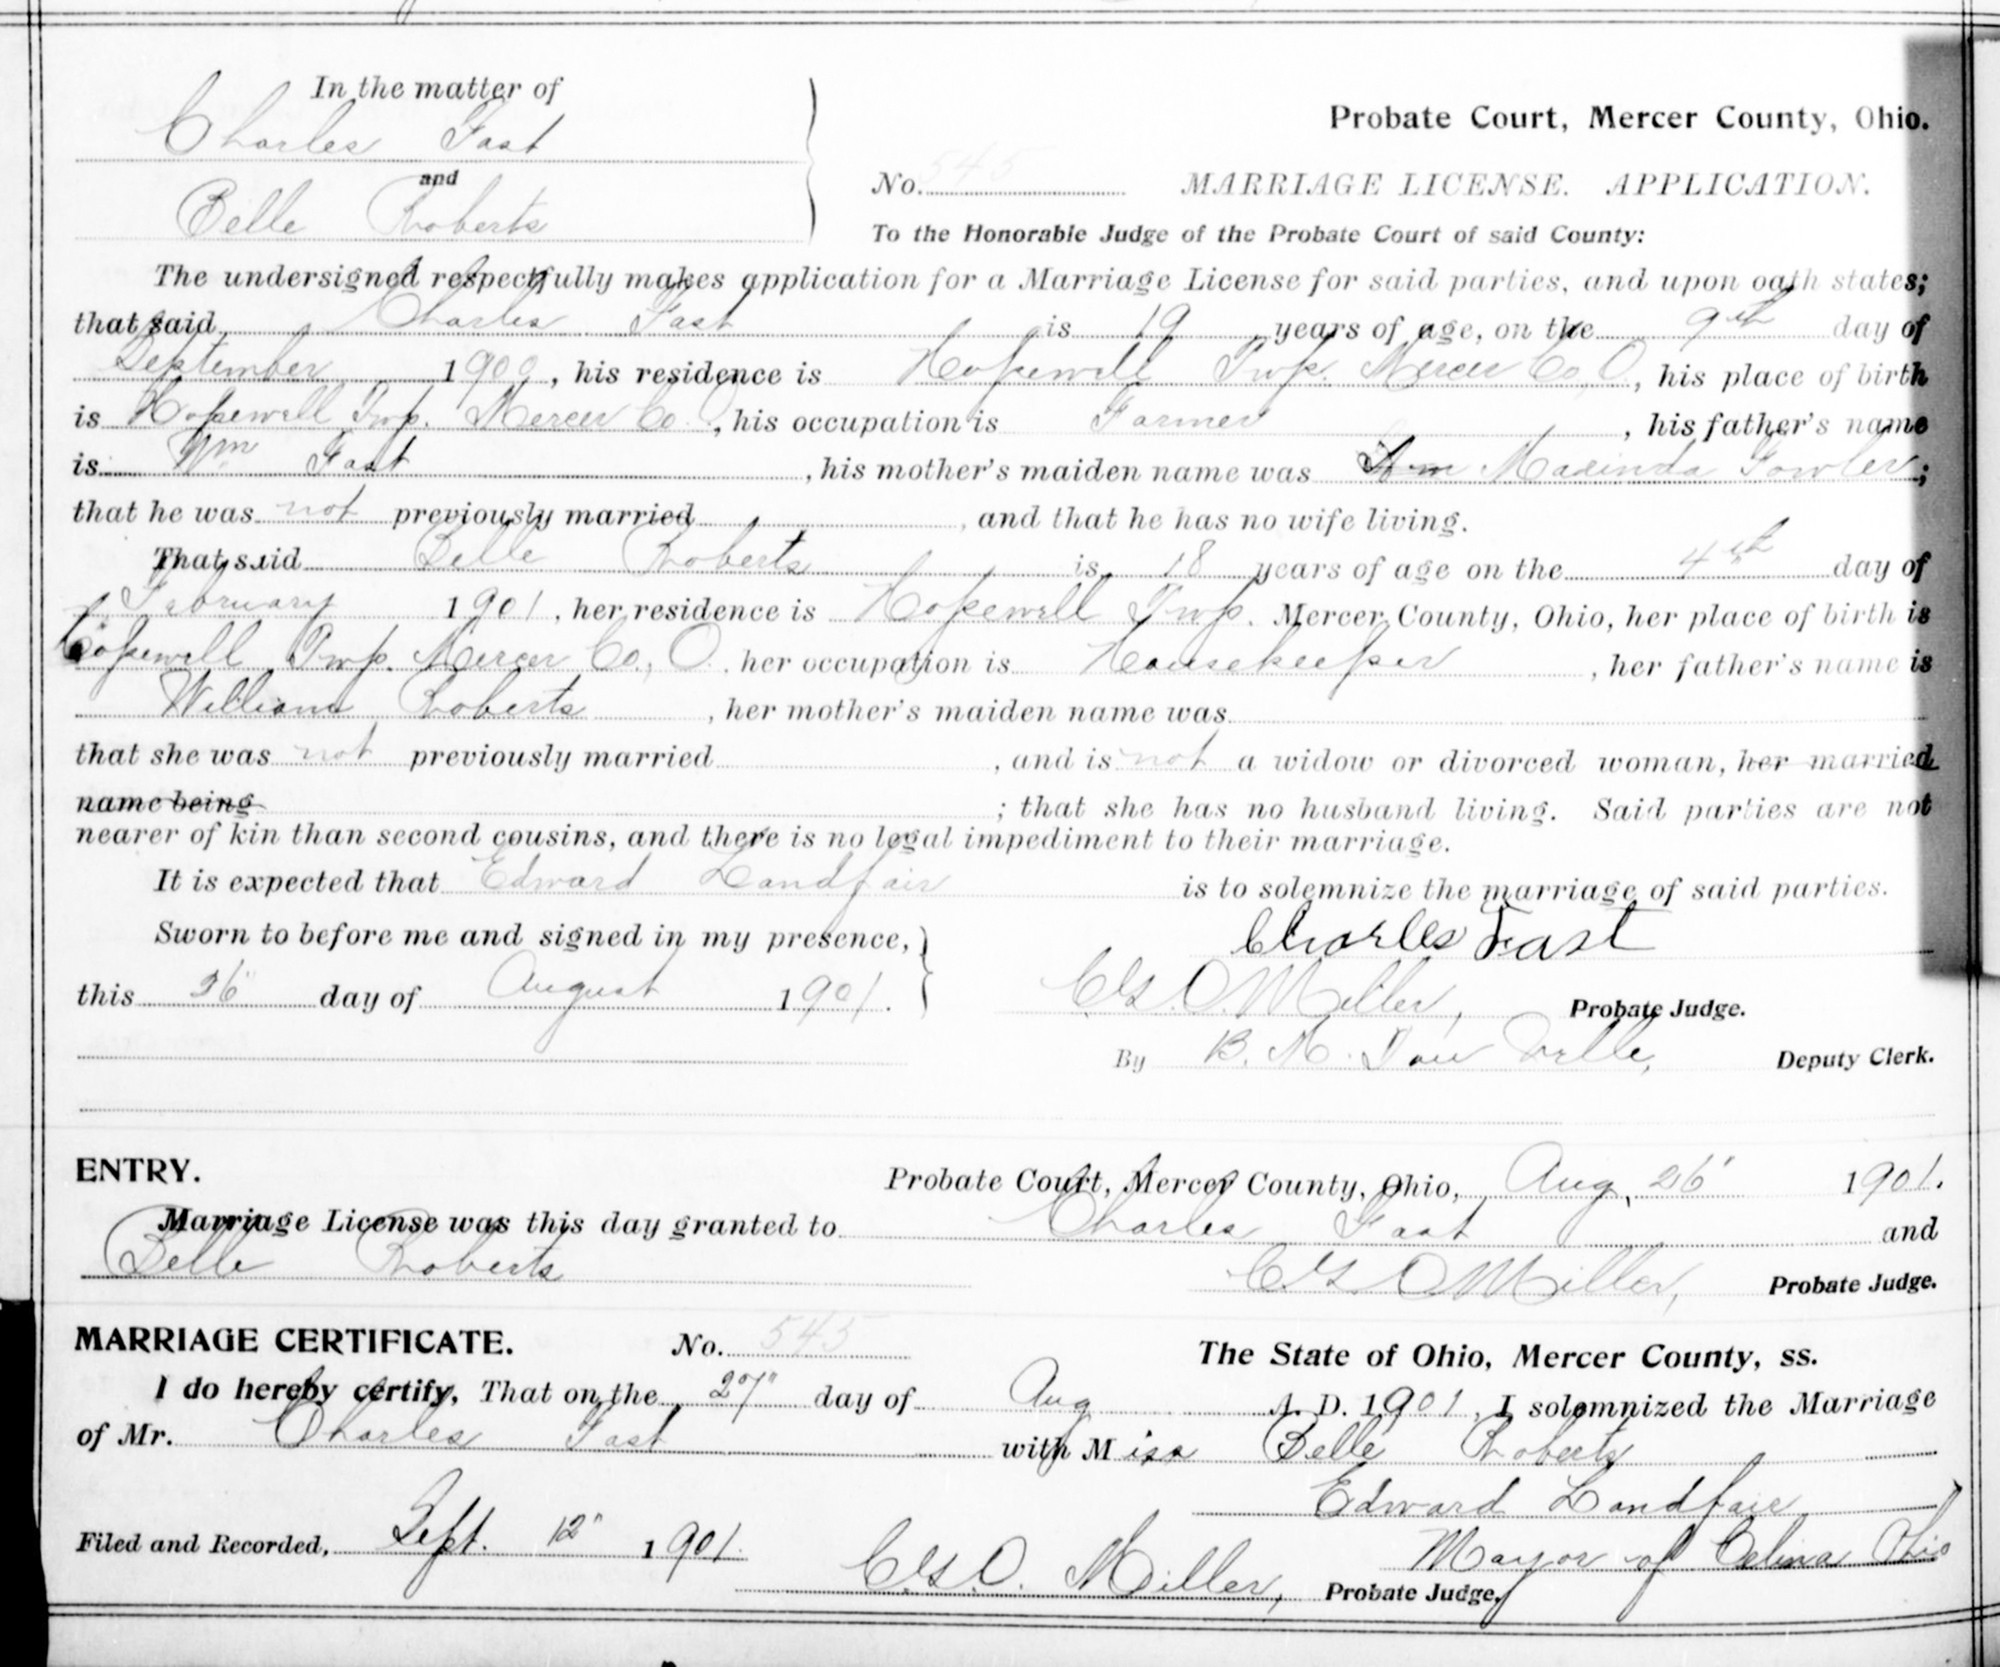 In the matter of
Charles Fast
and
Belle Roberts
Probate Court, Mercer County, Ohio.
No. 545 MARRIAGE LICENSE. APPLICATION.
To the Honorable Judge of the Probate Court of said County:
The undersigned respectfully makes application for a Marriage License for said parties, and upon oath states;
that said Charles Fast is 19 years of age, on the 9th day of
September 1900, his residence is Hopewell Twp. Mercer Co, O, his place of birth
is Hopewell Twp. Mercer Co. O, his occupation is Farmer, his father's name
is Wm Fast, his mother's maiden name was Marinda Fowler;
that he was not previously married, and that he has no wife living.
That said Belle Roberts is 18 years of age on the 4th day of
February 1901, her residence is Hopewell Twp. Mercer County, Ohio, her place of birth is
Hopewell Twp. Mercer Co., O. her occupation is Housekeeper, her father's name is
William Roberts, her mother's maiden name was
that she was not previously married, and is not a widow or divorced woman, her married
name being; that she has no husband living. Said parties are not
nearer of kin than second cousins, and there is no legal impediment to their marriage.
It is expected that Edward Landfair is to solemnize the marriage of said parties.
Sworn to before me and signed in my presence,
Charles Fast
this 26" day of August 1901.
Miller, Probate Judge.
By B. Deputy Clerk.
ENTRY. Probate Court, Mercer County, Ohio, Aug. 26" 1901.
Marriage License was this day granted to Charles Fast and
Belle Roberts
Miller, Probate Judge.
MARRIAGE CERTIFICATE. No. 545 The State of Ohio, Mercer County, ss.
I do hereby certify, That on the 27" day of Aug A. D. 1901, I solemnized the Marriage
of Mr. Charles Fast with Miss Belle Roberts
Edward Landfair
Mayor of Celina Ohio
Filed and Recorded, Sept. 12" 1901.
Miller, Probate Judge.